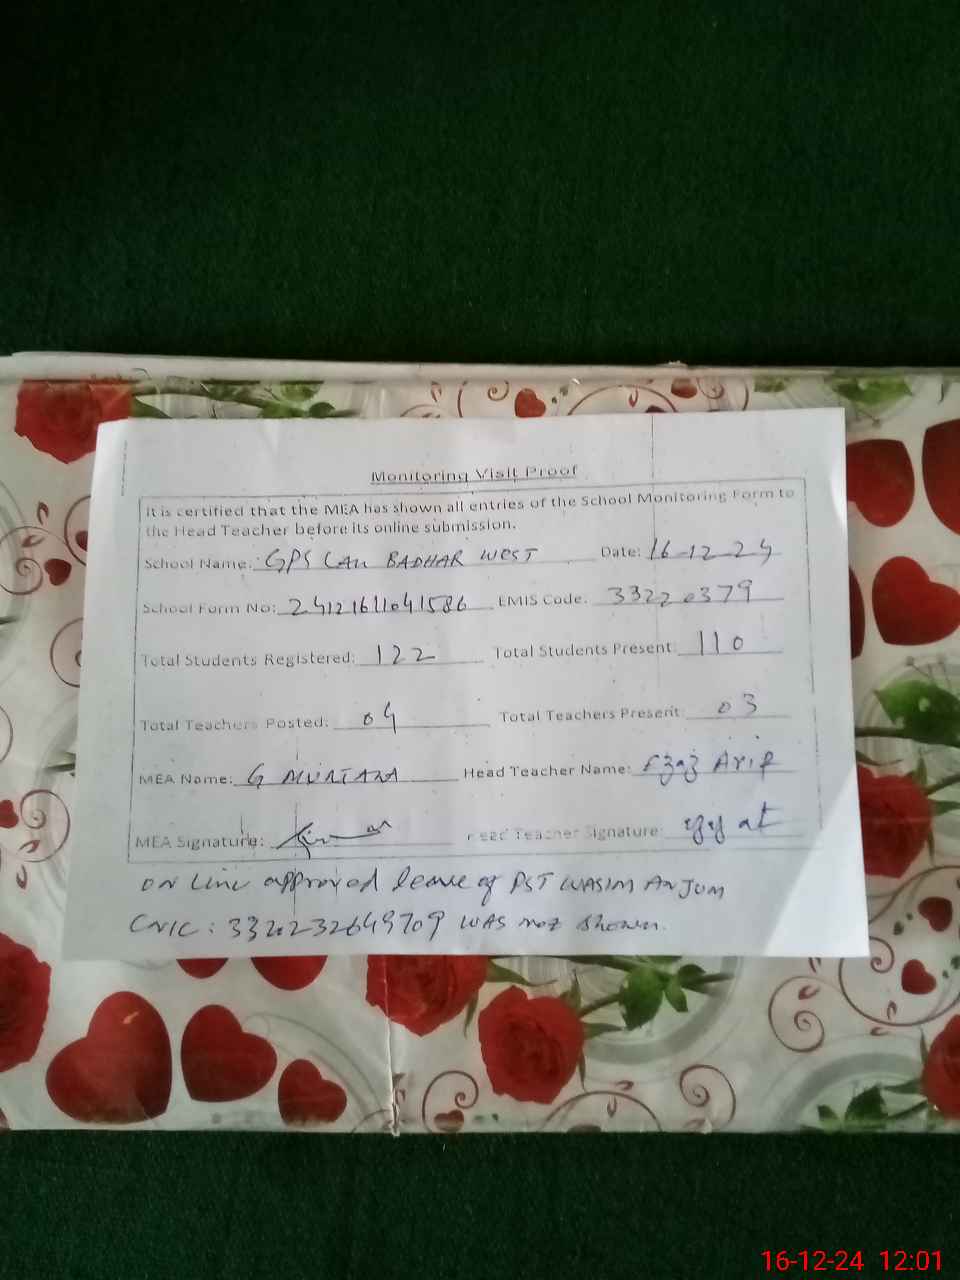 Monitoring Visit Proof
It is certified that the MEA has shown all entries of the School Monitoring Form to
the Head Teacher before its online submission.
School Name: GPS BADHAR WEST Date: 16-12-24
School Form No: 24121611041586 EMIS Code: 33220379
Total Students Registered: 122 Total Students Present: 110
Total Teachers Posted: 04 Total Teachers Present: 03
MEA Name: G MURTAZA Head Teacher Name: Arif
MEA Signature: Head Teacher Signature:
ON Line approved leave of PST WASIM ANJUM
CNIC: 3320232649709 WAS not shown.
16-12-24 12:01